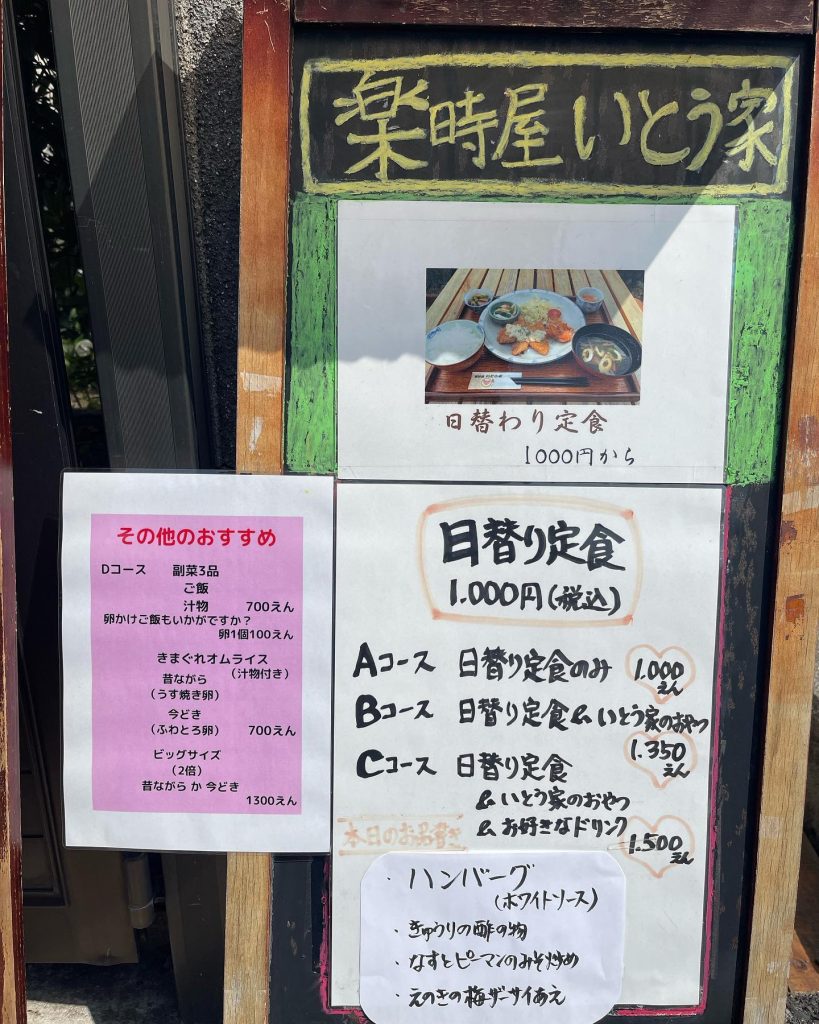 楽時屋いとう家
日替わり定食
1000円から
日替り定食
1.000円(税込)
Aコース 日替り定食のみ 1.000えん
Bコース 日替り定食&いとう家のおやつ
1.350えん
Cコース 日替り定食
&いとう家のおやつ
&お好きなドリンク
1.500えん
本日のお品書き
・ハンバーグ
(ホワイトソース)
・きゅうりの酢の物
・なすとピーマンのみそ炒め
・えのきの梅ザーサイあえ
その他のおすすめ
Dコース 副菜3品
ご飯
汁物 700えん
卵かけご飯もいかがですか?
卵1個100えん
きまぐれオムライス
(汁物付き)
昔ながら
(うす焼き卵)
今どき
(ふわとろ卵) 700えん
ビッグサイズ
(2倍)
昔ながら か 今どき
1300えん